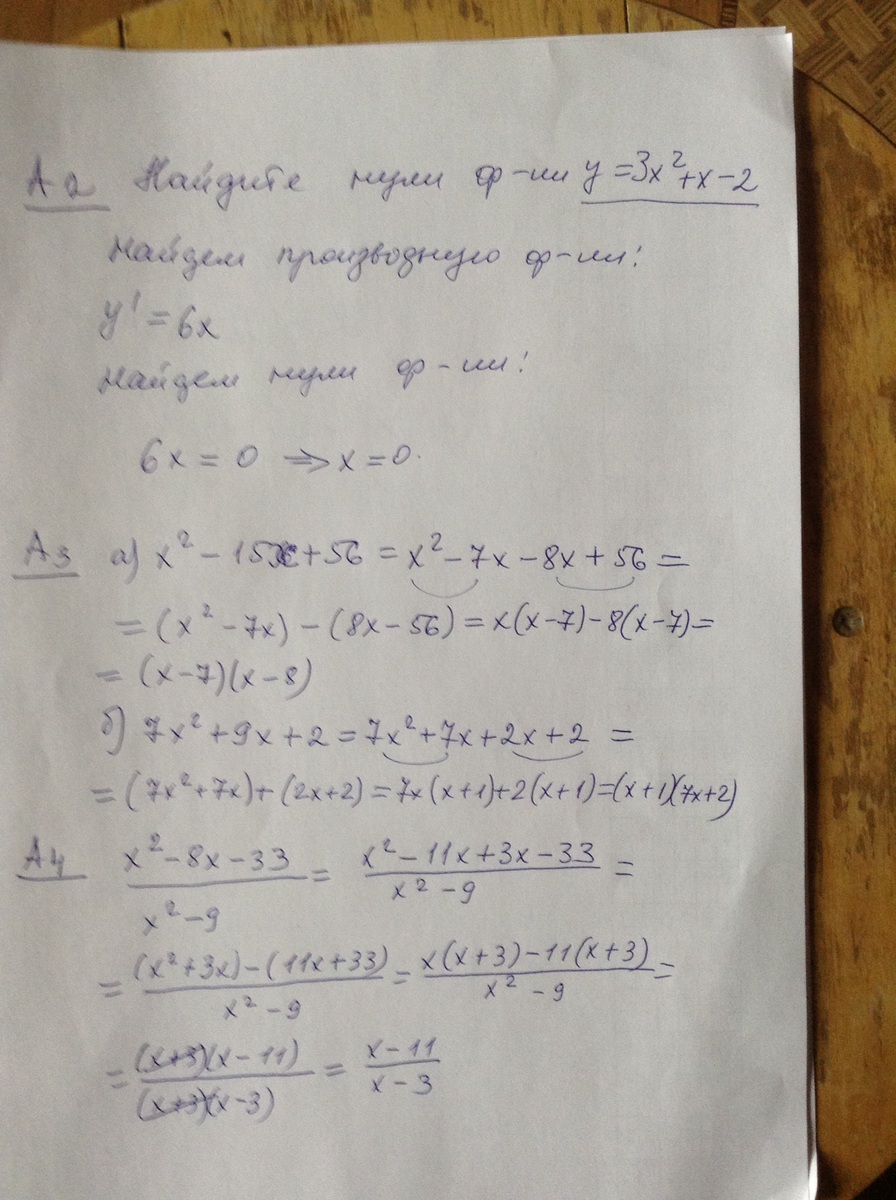 А2 Найдите нули ф-ии y=3x²+x-2
Найдем производную ф-ии:
y'=6x
Найдем нули ф-ии:
6x=0 ⇒ x=0.
А3 а) x²-15x+56=x²-7x-8x+56=
=(x²-7x)-(8x-56)=x(x-7)-8(x-7)=
=(x-7)(x-8)
б) 7x²+9x+2=7x²+7x+2x+2=
=(7x²+7x)+(2x+2)=7x(x+1)+2(x+1)=(x+1)(7x+2)
А4 (x²-8x-33)/(x²-9)=(x²-11x+3x-33)/(x²-9)=
=((x²+3x)-(11x+33))/(x²-9)=(x(x+3)-11(x+3))/(x²-9)=
=((x+3)(x-11))/((x+3)(x-3))=(x-11)/(x-3)